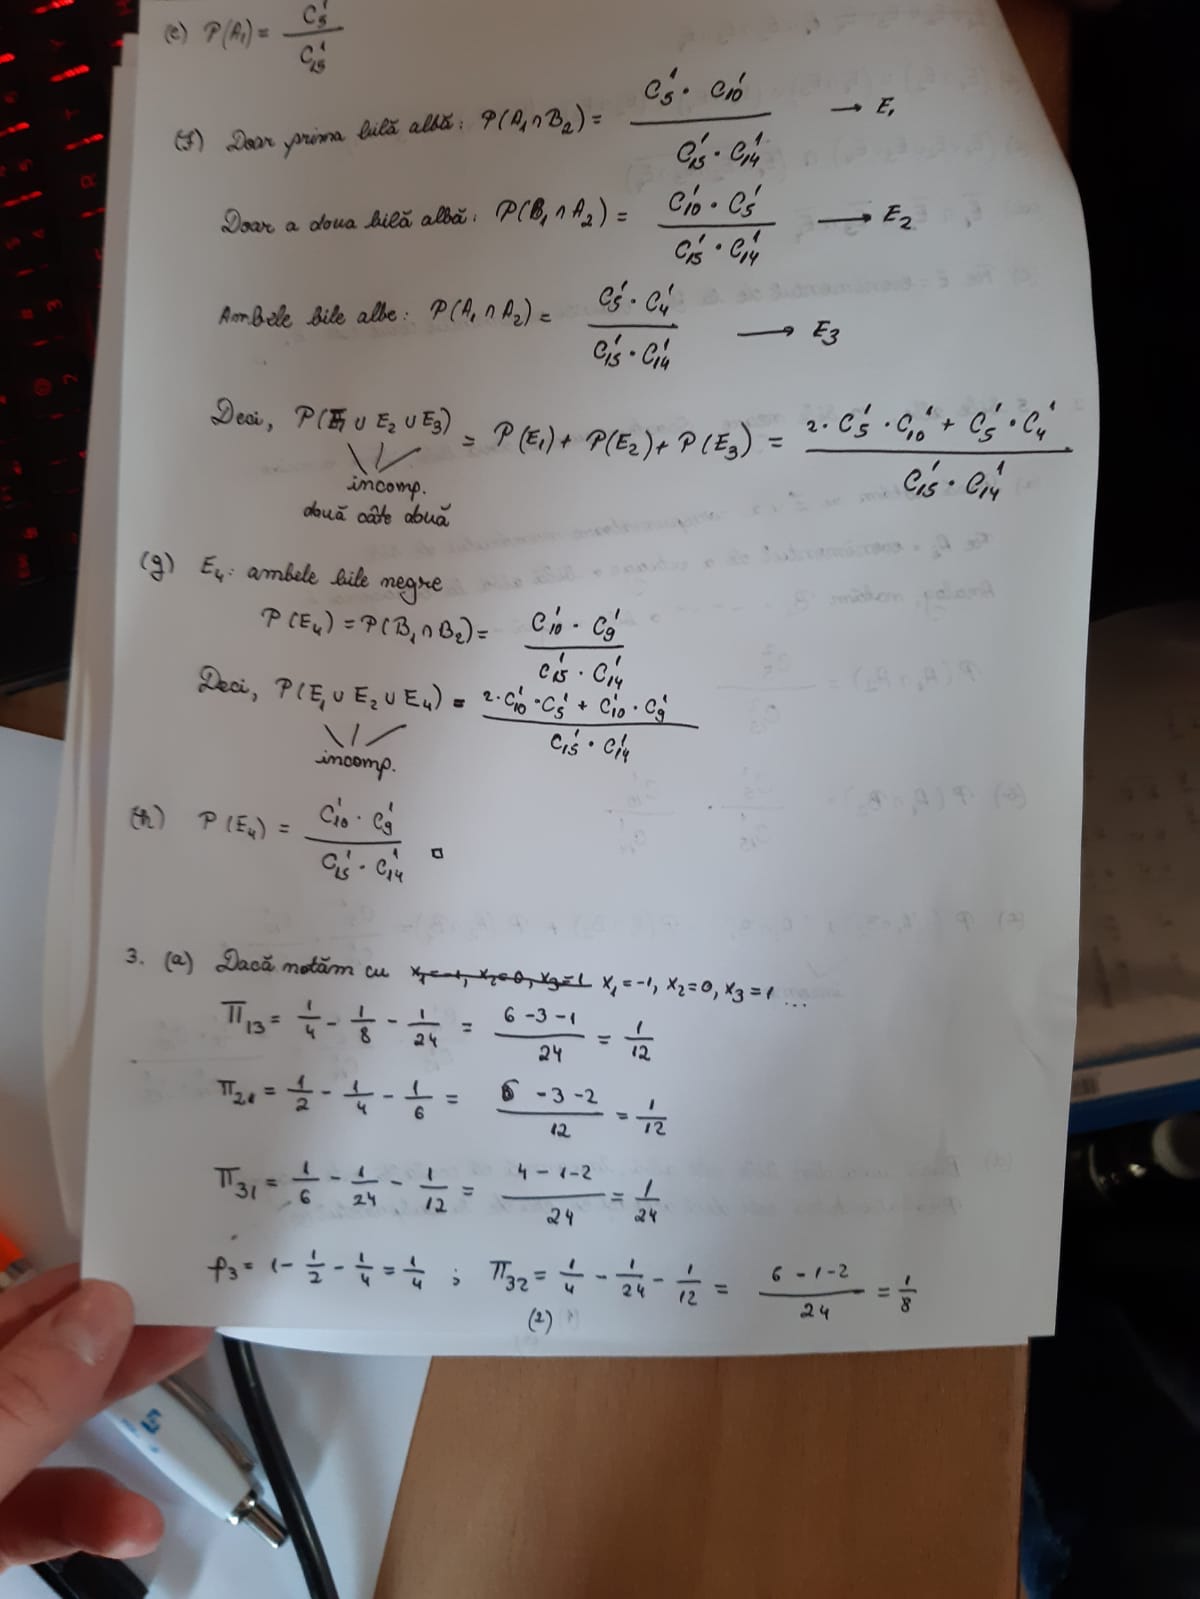 (e) P(A₁) = C₅¹ / C₁₅¹
(f) Doar prima bilă albă: P(A₁ ∩ B₂) = C₅¹ · C₁₀¹ / C₁₅¹ · C₁₄¹ → E₁
Doar a doua bilă albă: P(B₁ ∩ A₂) = C₁₀¹ · C₅¹ / C₁₅¹ · C₁₄¹ → E₂
Ambele bile albe: P(A₁ ∩ A₂) = C₅¹ · C₄¹ / C₁₅¹ · C₁₄¹ → E₃
Deci, P(E₁ ∪ E₂ ∪ E₃) = P(E₁) + P(E₂) + P(E₃) = 2 · C₅¹ · C₁₀¹ + C₅¹ · C₄¹ / C₁₅¹ · C₁₄¹
incomp.
două câte două
(g) E₄: ambele bile negre
P(E₄) = P(B₁ ∩ B₂) = C₁₀¹ · C₉¹ / C₁₅¹ · C₁₄¹
Deci, P(E₁ ∪ E₂ ∪ E₄) = 2 · C₁₀¹ · C₅¹ + C₁₀¹ · C₉¹ / C₁₅¹ · C₁₄¹
incomp.
(h) P(E₄) = C₁₀¹ · C₉¹ / C₁₅¹ · C₁₄¹ □
3. (a) Dacă notăm cu x₁=-1, x₂=0, x₃=1 x₁=-1, x₂=0, x₃=1 ...
Π₁₃ = 1/4 - 1/8 - 1/24 = 6-3-1 / 24 = 1/12
Π₂₁ = 1/2 - 1/4 - 1/6 = 6-3-2 / 12 = 1/12
Π₃₁ = 1/6 - 1/24 - 1/12 = 4-1-2 / 24 = 1/24
p₃ = 1 - 1/2 - 1/4 = 1/4 ; Π₃₂ = 1/4 - 1/24 - 1/12 = 6-1-2 / 24 = 1/8
(2)